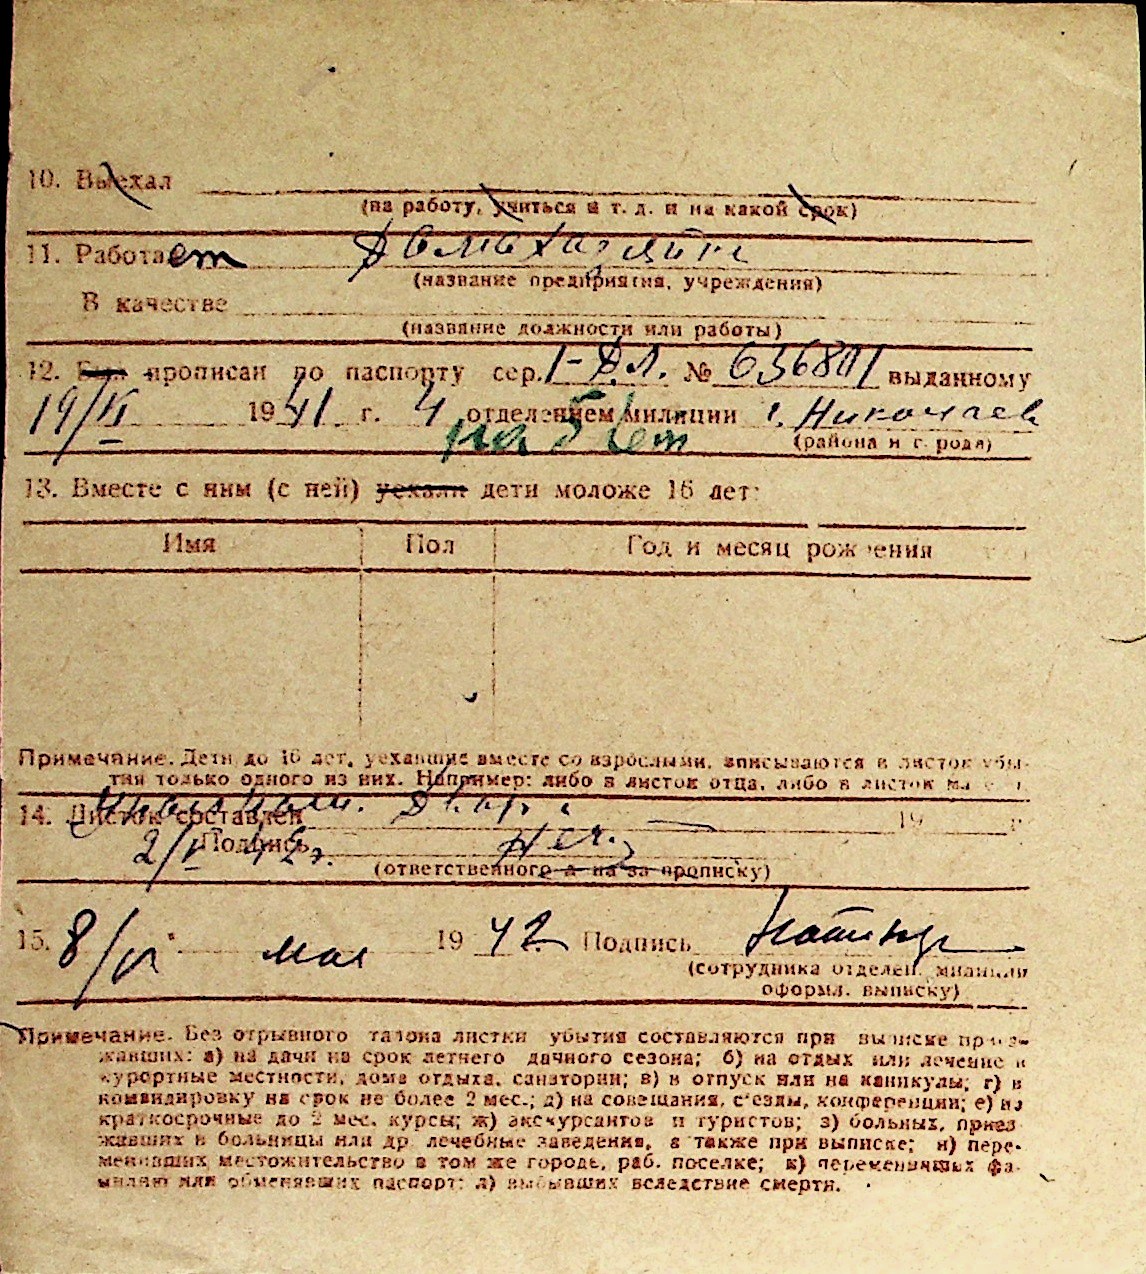 10. Выехал
(на работу, учиться и т. д. и на какой срок)
11. Работает Домохозяйка
(название предприятия, учреждения)
В качестве
(название должности или работы)
12. Был прописан по паспорту сер. I-ДЛ. № 636801 выданному
19/VI 1941 г. 4 отделением милиции г. Николаев
на 5 лет
(района и города)
13. Вместе с ним (с ней) уехали дети моложе 16 лет:
Имя Пол Год и месяц рождения
Примечание. Дети до 16 лет, уехавшие вместе со взрослыми, вписываются в листок убы-
тия только одного из них. Например: либо в листок отца, либо в листок ма
14. Листок составлен 19 г.
2/V 42г. Подпись
(ответственного за прописку)
15. 8/VI мая 1942 Подпись
(сотрудника отделен. милиции
оформл. выписку)
Примечание. Без отрывного талона листки убытия составляются при выписке приез-
жавших: а) на дачи на срок летнего дачного сезона; б) на отдых или лечение в
курортные местности, дома отдыха, санатории; в) в отпуск или на каникулы; г) в
командировку на срок не более 2 мес.; д) на совещания, с'езды, конференции; е) на
краткосрочные до 2 мес. курсы; ж) экскурсантов и туристов; з) больных, приез
жавших в больницы или др лечебные заведения, а также при выписке; и) пере-
менивших местожительство в том же городе, раб. поселке; к) переменивших фа-
милию или обменявших паспорт; л) выбывших вследствие смерти.